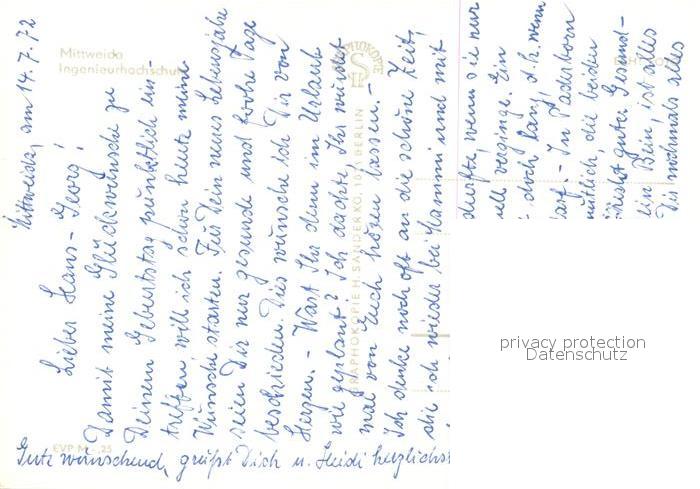 Mittweida, am 14.7.72
Lieber Hans-Georg!
Damit meine Glückwünsche zu
Deinem Geburtstag pünktlich ein-
treffen will ich schon heute meine
Wünsche starten. Für Dein neues Lebensjahr
seien Dir nur gesunde und frohe Tage
beschieden. Dies wünsche ich Dir von
Herzen. - Wart Ihr denn im Urlaub
wie geplant? Ich dachte, Ihr würdet
mal von Euch hören lassen. -
Ich denke noch oft an die schöne Zeit,
die ich wieder bei Mammi und mit
dürfte, wenn sie nur
verginge. Ein
doch lang, d.h. wenn
darf. - In Paderborn
die beiden
guter Gesund-
ein Bein, ist alles
Dir nochmals alles
Gute wünschend, grüßt Dich u. Heidi herzlichst
Mittweida
Ingenieurhochschule
EVP M -,25
GRAPHOKOPIE H. SANDER KG, 1071 BERLIN
GRAPHOKOPIE
privacy protection
Datenschutz